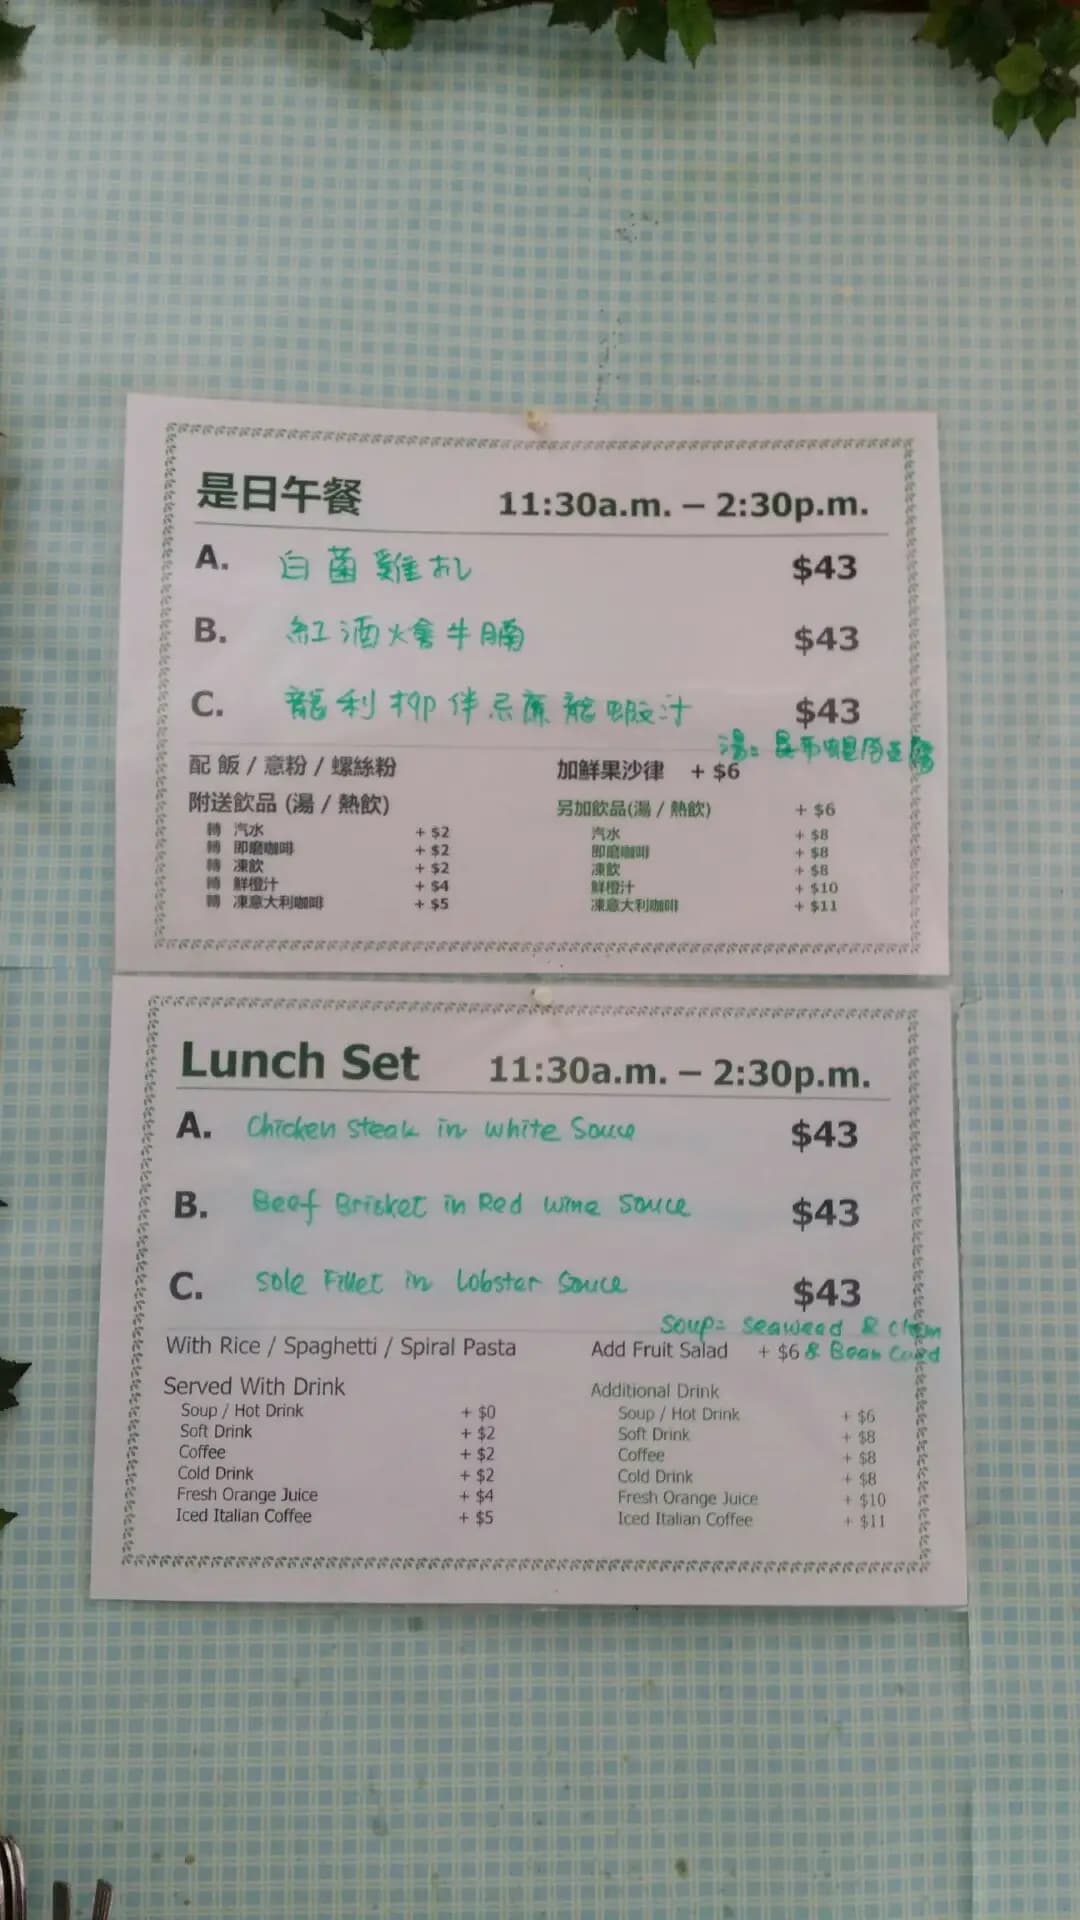 是日午餐 11:30a.m. – 2:30p.m.
A. 白菌雞扒 $43
B. 紅酒燴牛腩 $43
C. 龍利柳伴忌廉龍蝦汁 $43
湯: 昆布蜆肉豆腐
配 飯 / 意粉 / 螺絲粉 加鮮果沙律 + $6
附送飲品 (湯 / 熱飲) 另加飲品(湯 / 熱飲) + $6
轉 汽水 + $2 汽水 + $8
轉 即磨咖啡 + $2 即磨咖啡 + $8
轉 凍飲 + $2 凍飲 + $8
轉 鮮橙汁 + $4 鮮橙汁 + $10
轉 凍意大利咖啡 + $5 凍意大利咖啡 + $11
Lunch Set 11:30a.m. – 2:30p.m.
A. Chicken Steak in White Sauce $43
B. Beef Brisket in Red Wine Sauce $43
C. Sole Fillet in Lobster Sauce $43
Soup: Seaweed & Clam
With Rice / Spaghetti / Spiral Pasta Add Fruit Salad + $6 & Bean Curd
Served With Drink Additional Drink
Soup / Hot Drink + $0 Soup / Hot Drink + $6
Soft Drink + $2 Soft Drink + $8
Coffee + $2 Coffee + $8
Cold Drink + $2 Cold Drink + $8
Fresh Orange Juice + $4 Fresh Orange Juice + $10
Iced Italian Coffee + $5 Iced Italian Coffee + $11